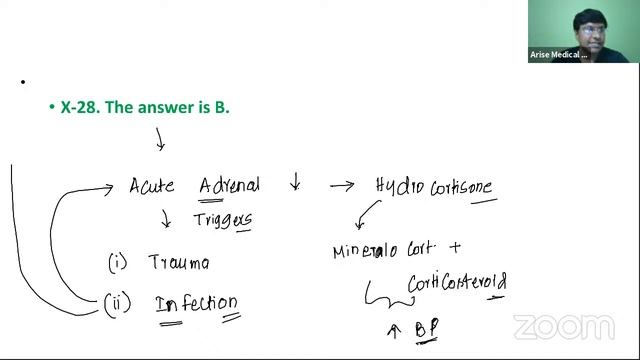 Arise Medical ...
• X-28. The answer is B.
Acute Adrenal ↓ → Hydrocortisone
Triggers
(i) Trauma
(ii) Infection
Mineralo cort. +
Corticosteroid
↑ BP
zoom